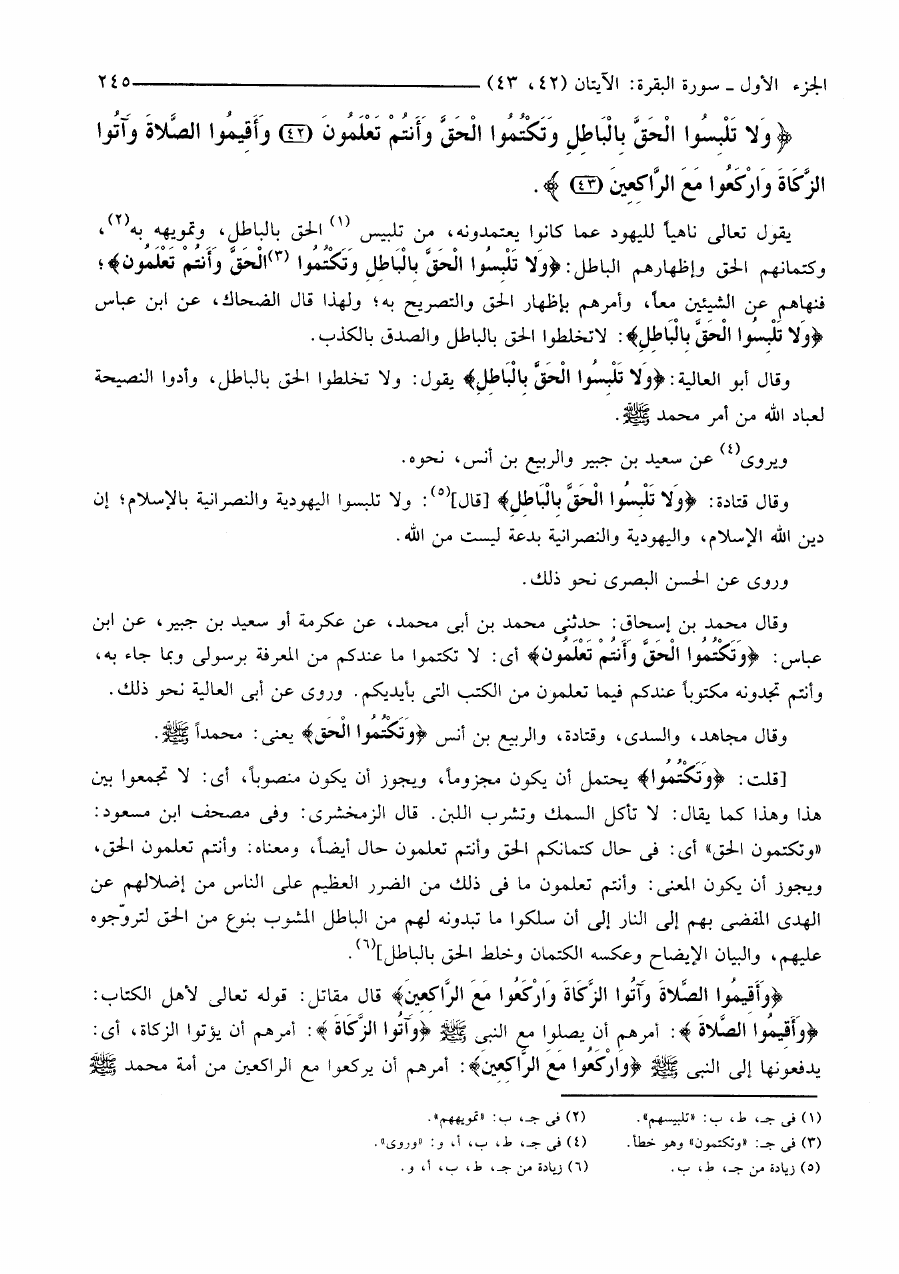 الجزء الأول ـ سورة البقرة: الآيتان (٤٢، ٤٣) ــــــــــــــــــــ ٢٤٥
﴿ وَلا تَلْبِسُوا الْحَقَّ بِالْبَاطِلِ وَتَكْتُمُوا الْحَقَّ وَأَنتُمْ تَعْلَمُونَ (٤٢) وَأَقِيمُوا الصَّلاةَ وَآتُوا
الزَّكَاةَ وَارْكَعُوا مَعَ الرَّاكِعِينَ (٤٣) ﴾ .
يقول تعالى ناهياً لليهود عما كانوا يعتمدونه، من تلبيس (١) الحق بالباطل، وتمويهه به(٢)،
وكتمانهم الحق وإظهارهم الباطل: ﴿وَلا تَلْبِسُوا الْحَقَّ بِالْبَاطِلِ وَتَكْتُمُوا (٣)الْحَقَّ وَأَنتُمْ تَعْلَمُون﴾؛
فنهاهم عن الشيئين معاً، وأمرهم بإظهار الحق والتصريح به؛ ولهذا قال الضحاك، عن ابن عباس
﴿وَلا تَلْبِسُوا الْحَقَّ بِالْبَاطِلِ﴾: لاتخلطوا الحق بالباطل والصدق بالكذب.
وقال أبو العالية: ﴿وَلا تَلْبِسُوا الْحَقَّ بِالْبَاطِلِ﴾ يقول: ولا تخلطوا الحق بالباطل، وأدوا النصيحة
لعباد الله من أمر محمد ﷺ.
ويروى(٤) عن سعيد بن جبير والربيع بن أنس، نحوه.
وقال قتادة: ﴿وَلا تَلْبِسُوا الْحَقَّ بِالْبَاطِلِ﴾ [قال](٥): ولا تلبسوا اليهودية والنصرانية بالإسلام؛ إن
دين الله الإسلام، واليهودية والنصرانية بدعة ليست من الله.
وروى عن الحسن البصرى نحو ذلك.
وقال محمد بن إسحاق: حدثنى محمد بن أبى محمد، عن عكرمة أو سعيد بن جبير، عن ابن
عباس: ﴿وَتَكْتُمُوا الْحَقَّ وَأَنتُمْ تَعْلَمُون﴾ أى: لا تكتموا ما عندكم من المعرفة برسولى وبما جاء به،
وأنتم تجدونه مكتوباً عندكم فيما تعلمون من الكتب التى بأيديكم. وروى عن أبى العالية نحو ذلك.
وقال مجاهد، والسدى، وقتادة، والربيع بن أنس ﴿وَتَكْتُمُوا الْحَق﴾ يعنى: محمداً ﷺ.
[قلت: ﴿وَتَكْتُمُوا﴾ يحتمل أن يكون مجزوماً، ويجوز أن يكون منصوباً، أى: لا تجمعوا بين
هذا وهذا كما يقال: لا تأكل السمك وتشرب اللبن. قال الزمخشرى: وفى مصحف ابن مسعود:
«وتكتمون الحق» أى: فى حال كتمانكم الحق وأنتم تعلمون حال أيضاً، ومعناه: وأنتم تعلمون الحق،
ويجوز أن يكون المعنى: وأنتم تعلمون ما فى ذلك من الضرر العظيم على الناس من إضلالهم عن
الهدى المفضى بهم إلى النار إلى أن سلكوا ما تبدونه لهم من الباطل المشوب بنوع من الحق لتروّجوه
عليهم، والبيان الإيضاح وعكسه الكتمان وخلط الحق بالباطل](٦).
﴿وَأَقِيمُوا الصَّلاةَ وَآتُوا الزَّكَاةَ وَارْكَعُوا مَعَ الرَّاكِعِينَ﴾ قال مقاتل: قوله تعالى لأهل الكتاب:
﴿وَأَقِيمُوا الصَّلاةَ ﴾: أمرهم أن يصلوا مع النبى ﷺ ﴿وَآتُوا الزَّكَاةَ ﴾: أمرهم أن يؤتوا الزكاة، أى:
يدفعونها إلى النبى ﷺ ﴿وَارْكَعُوا مَعَ الرَّاكِعِينَ﴾: أمرهم أن يركعوا مع الراكعين من أمة محمد ﷺ
(١) فى جـ، ط، ب: «تلبيسهم». (٢) فى جـ، ب: «تمويههم».
(٣) فى جـ: «وتكتمون» وهو خطأ. (٤) فى جـ، ط، ب، أ، و: «وروى».
(٥) زيادة من جـ، ط، ب. (٦) زيادة من جـ، ط، ب، أ، و.